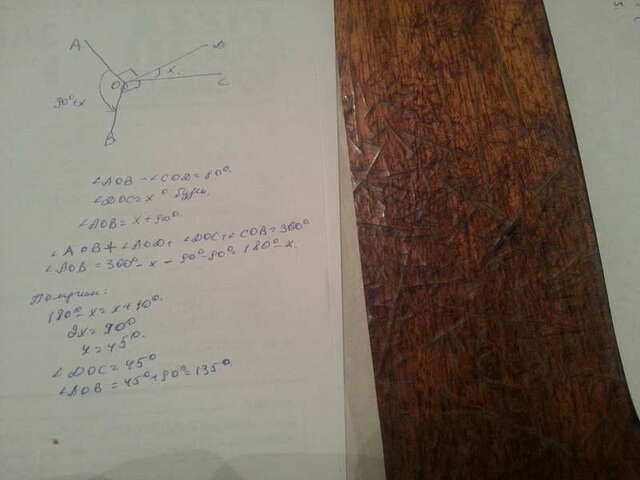 A
D
O
x
C
90°+x
B
∠AOB - ∠COD = 90°.
∠DOC = x° будет.
∠AOB = x + 90°.
∠AOB + ∠AOD + ∠DOC + ∠COB = 360°
∠AOB = 360° - x - 90° - 90° = 180° - x.
Получим:
180° - x = x + 90°.
2x = 90°
x = 45°.
∠DOC = 45°
∠AOB = 45° + 90° = 135°.